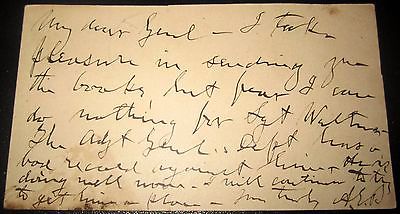 My dear Genl — I take
pleasure in sending you
the books but fear I can
do nothing for Sgt
The Adjt Genl. Dept has a
bad record against him.
doing well now — I will continue to try
to get him a place — Yours truly